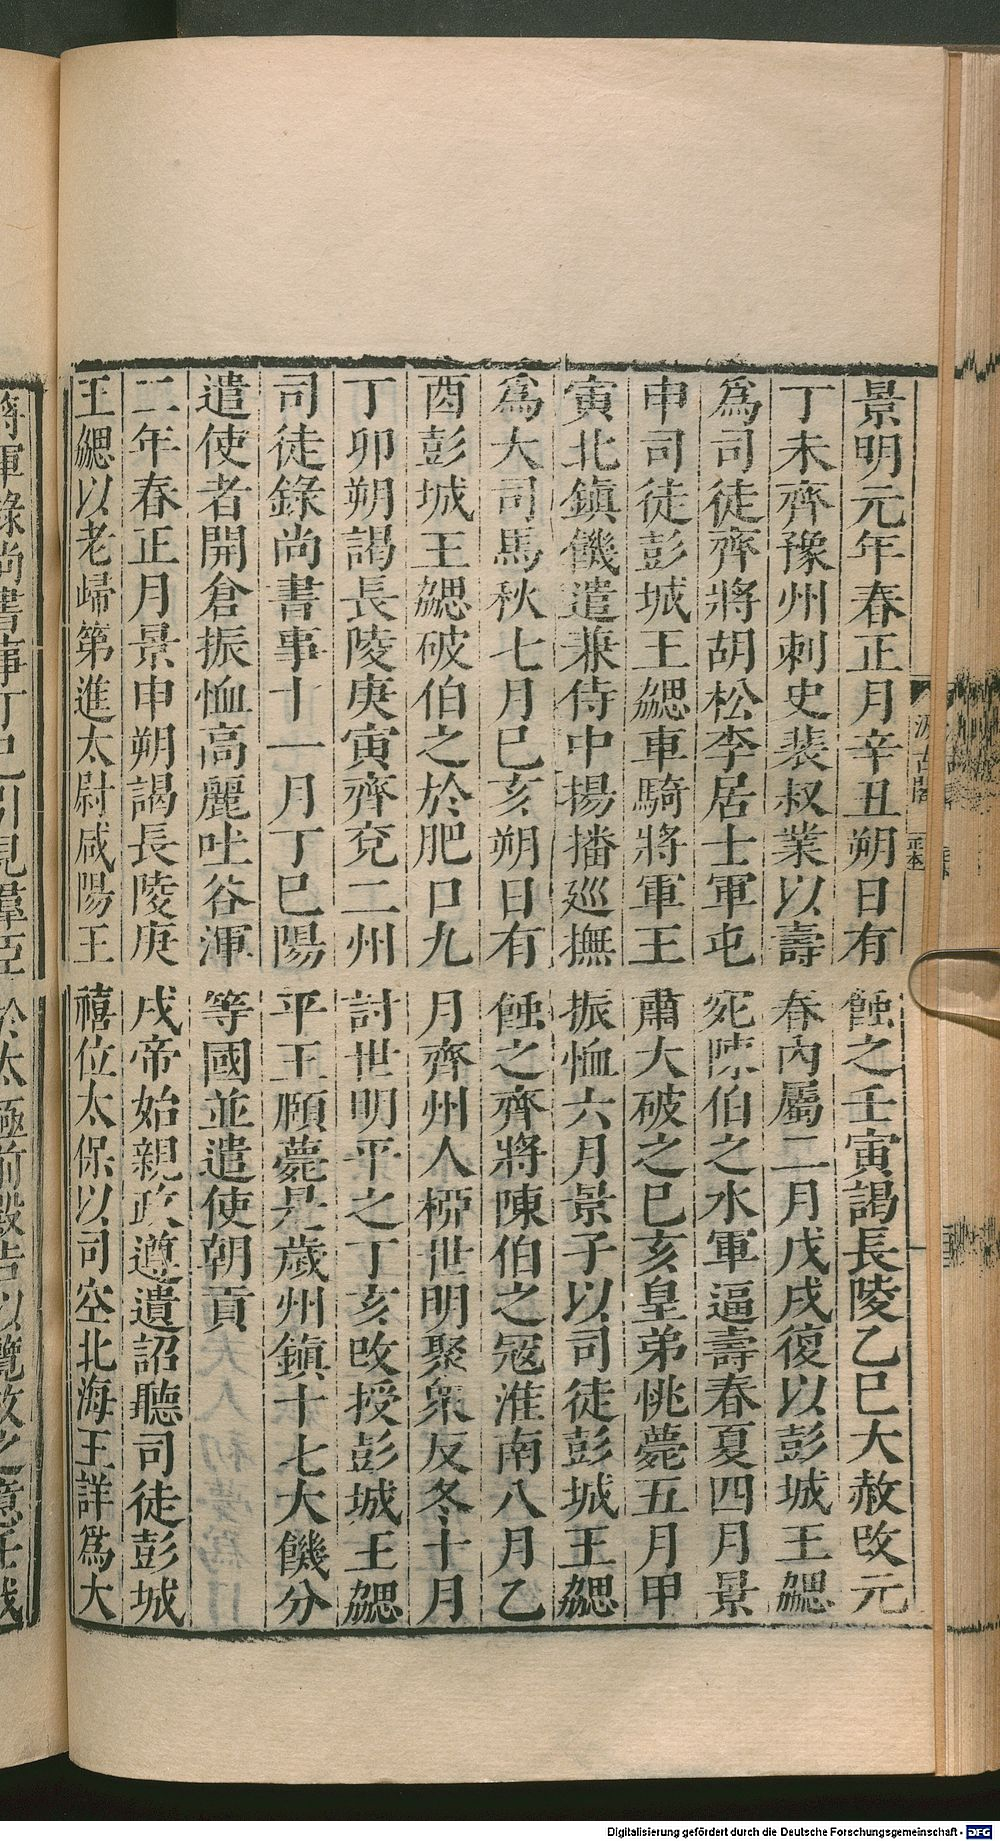 景明元年春正月辛丑朔日有蝕之壬寅謁長陵乙巳大赦改元
丁未齊豫州刺史裴叔業以壽春內屬二月戊戌復以彭城王勰
爲司徒齊將胡松李居士軍屯宛陳伯之水軍逼壽春夏四月景
申司徒彭城王勰車騎將軍王肅大破之巳亥皇弟恌薨五月甲
寅北鎮饑遣兼侍中揚播巡撫振恤六月景子以司徒彭城王勰
爲大司馬秋七月巳亥朔日有蝕之齊將陳伯之冦淮南八月乙
酉彭城王勰破伯之於肥口九月齊州人桺世明聚衆反冬十月
丁卯朔謁長陵庚寅齊兗二州討世明平之丁亥改授彭城王勰
司徒錄尚書事十一月丁巳陽平王頤薨是歲州鎮十七大饑分
遣使者開倉振恤高麗吐谷渾等國並遣使朝貢
二年春正月景申朔謁長陵庚戌帝始親政遵遺詔聽司徒彭城
王勰以老歸第進太尉咸陽王禧位太保以司空北海王詳爲大
將軍錄尚書事丁巳引見羣臣於太極前殿告以覽政之意壬戌
汲古閣
正本
Digitalisierung gefördert durch die Deutsche Forschungsgemeinschaft - DFG